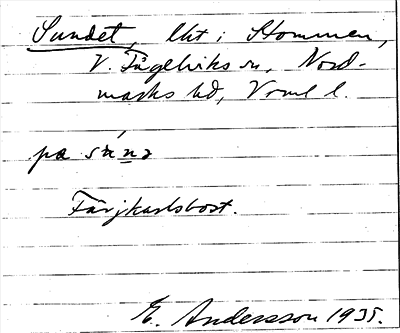 Sundet, lht i Stommen,
V. Fågelviks sn, Nord-
marks hd, Vrml l.
pa
Färjkarlsbost.
E. Andersson 1935.